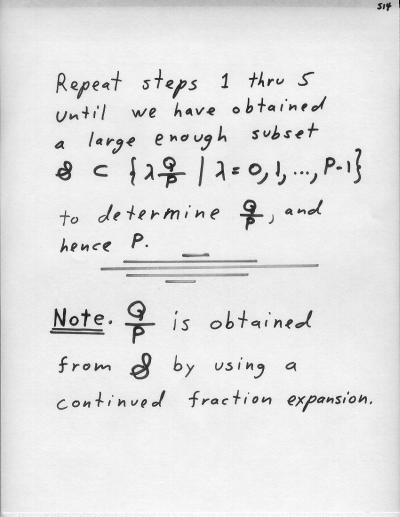 S14
Repeat steps 1 thru 5
until we have obtained
a large enough subset
𝒮 ⊂ {λ Q/P | λ = 0, 1, ..., P-1}
to determine Q/P, and
hence P.
Note. Q/P is obtained
from 𝒮 by using a
continued fraction expansion.